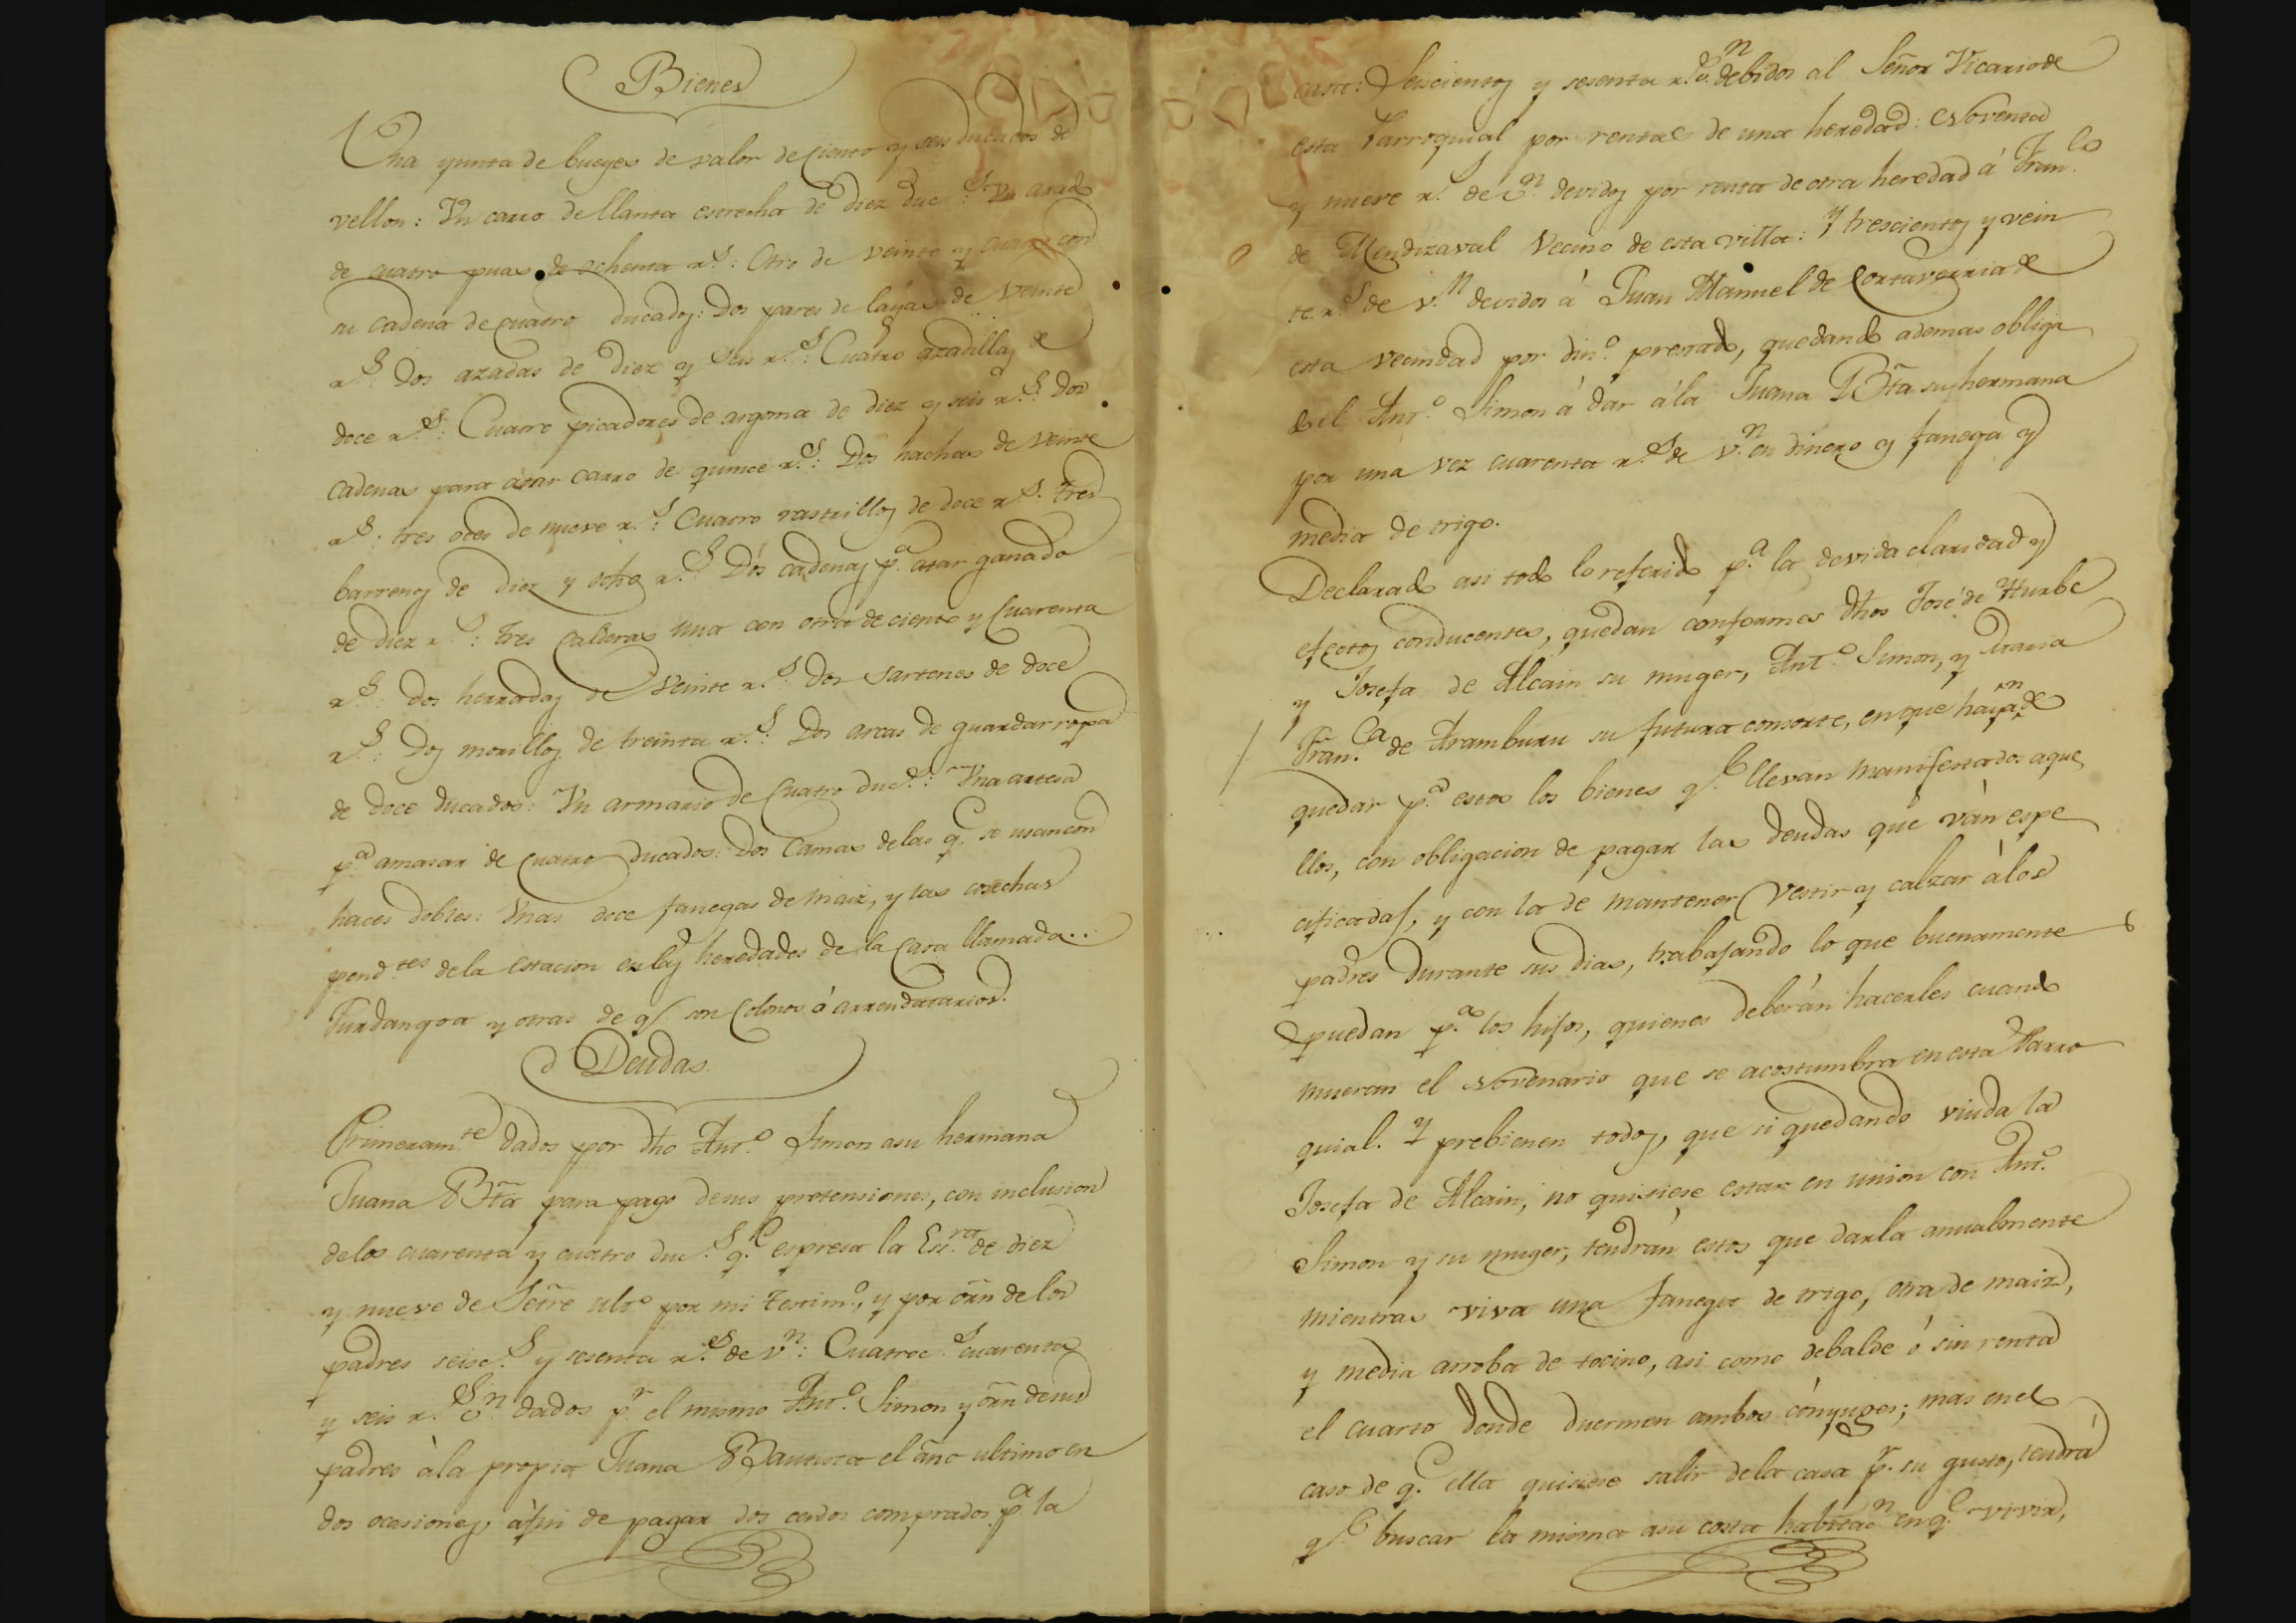 Bienes
Una yunta de bueyes de valor de ciento y seis ducados de
vellon: Un carro de llanta estrecha de diez duc.s: Un arado
de cuatro puas de ochenta r.s: Otro de veinte y cuatro con
su cadena de cuatro ducados: Dos pares de layas de veinte
r.s: Dos azadas de diez y seis r.s: Cuatro azadillas de
doce r.s: Cuatro picadores de argoma de diez y seis r.s: Dos
cadenas para atar carro de quince r.s: Dos hachas de veinte
r.s: tres oces de nueve r.s: Cuatro rastrillos de doce r.s: tres
barrenos de diez y ocho r.s: Dos cadenas p.a atar ganado
de diez r.s: tres calderas una con otra de ciento y cuarenta
r.s: Dos herradas de veinte r.s: Dos sartenes de doce
r.s: Dos morillos de treinta r.s: Dos arcas de guardar ropa
de doce ducados: Un armario de cuatro duc.s: Una artesa
p.a amasar de cuatro ducados: Dos camas de las q.e se usan con
haces dobles: Unas doce fanegas de maiz, y las cosechas
pend.tes de la estacion en las heredades de la casa llamada..
Turdangoa y otras de q.e son colonos ó arrendatarios.
Deudas.
Primeram.te dados por dho Ant.o Simon a su hermana
Juana Bta para pago de sus pretensiones, con inclusion
de los cuarenta y cuatro duc.s q.e espresa la Ess.ra de diez
y nueve de Setre ult.o por mi testim.o, y por orn de los
padres seisc.s y sesenta r.s de v.n: Cuatroc.s cuarenta
y seis r.s v.n dados p.r el mismo Ant.o Simon y orn de sus
padres à la propia Juana Bautista el año ultimo en
dos ocasiones, à fin de pagar dos cerdos comprados p.a la
casa: Seiscientos y sesenta r.s v.n debidos al Señor Vicario de
esta Parroquial por renta de una heredad: Noventa
y nueve r.s de v.n devidos por renta de otra heredad á Fran.co
de Mendizaval vecino de esta villa: Y trescientos y vein
te r.s de v.n devidos à Juan Manuel de Cortaverria de
esta vecindad por din.o prestado, quedando ademas obliga
do el Ant.o Simon á dar á la Juana Bta su hermana
por una vez cuarenta r.s de v.n en dinero y fanega y
media de trigo.
Declarado asi todo lo referido p.a la devida claridad y
efectos conducentes, quedan conformes dhos José de Yturbe
y Josefa de Alcain su muger, Ant.o Simon, y Maria
Fran.ca de Aramburu su futura consorte, en que hayan de
quedar p.a estos los bienes q.e llevan manifestados aque
llos, con obligacion de pagar las deudas que ván espe
cificadas, y con la de mantener vestir y calzar á los
padres durante sus dias, trabajando lo que buenamente
puedan p.a los hijos, quienes deberán hacerles cuando
mueran el Novenario que se acostumbra en esta Parro
quial. Y prebienen todos, que si quedando viuda la
Josefa de Alcain, no quisiese estar en union con Ant.o
Simon y su muger, tendrán estos que darla anualmente
mientras viva una fanega de trigo, otra de maiz,
y media arroba de tocino, asi como debalde ó sin renta
el cuarto donde duermen ambos cónyuges; mas en el
caso de q.e ella quisiese salir de la casa p.r su gusto, tendrá
q.e buscar la misma a su costa habitac.n en q.e vivir,